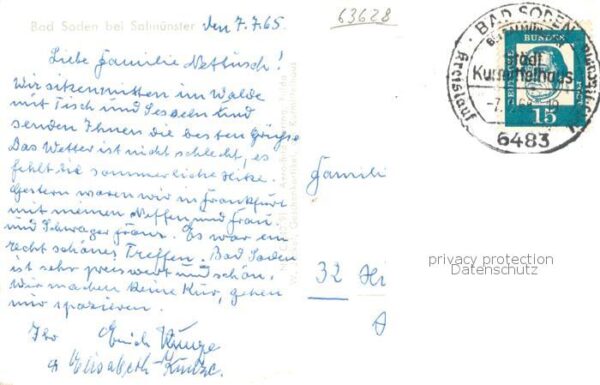 Bad Soden bei Salmünster den 7.7.65.
63628
Liebe Familie Nettusch!
Wir sitzen mitten im Walde
mit Tisch und Sesseln und
senden Ihnen die besten Grüße
Das Wetter ist nicht schlecht, es
fehlt die sommerliche Hitze.
Gestern waren wir in Frankfurt
mit meinen Neffen und Frau
und Schwager Franz. Es war ein
recht schönes Treffen. Bad Soden
ist sehr preiswert und schön.
Wir machen keine Kur, gehen
nur spazieren.
Ihr Erich Kunze
u Elisabeth Kunze.
BAD SODEN
Stadt
Kurmittelhaus
6483
BUNDES
15
Famili
32 Hi
privacy protection
Datenschutz